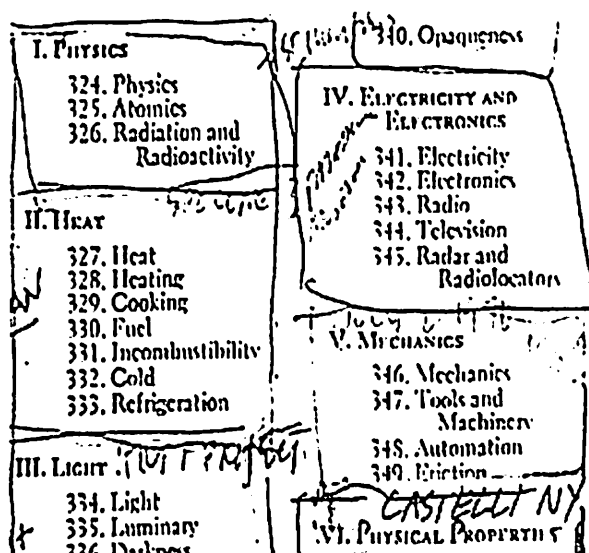 I. PHYSICS
324. Physics
325. Atomics
326. Radiation and
Radioactivity
II. HEAT
327. Heat
328. Heating
329. Cooking
330. Fuel
331. Incombustibility
332. Cold
333. Refrigeration
III. LIGHT
334. Light
335. Luminary
336. Darkness
340. Opaqueness
IV. ELECTRICITY AND
ELECTRONICS
341. Electricity
342. Electronics
343. Radio
344. Television
345. Radar and
Radiolocators
V. MECHANICS
346. Mechanics
347. Tools and
Machinery
348. Automation
349. Friction
CASTELLI NY
VI. PHYSICAL PROPERTIES